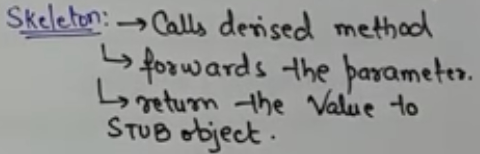 Skeleton: → Calls derised method
↳ forwards the parameter.
↳ return the Value to
STUB object.